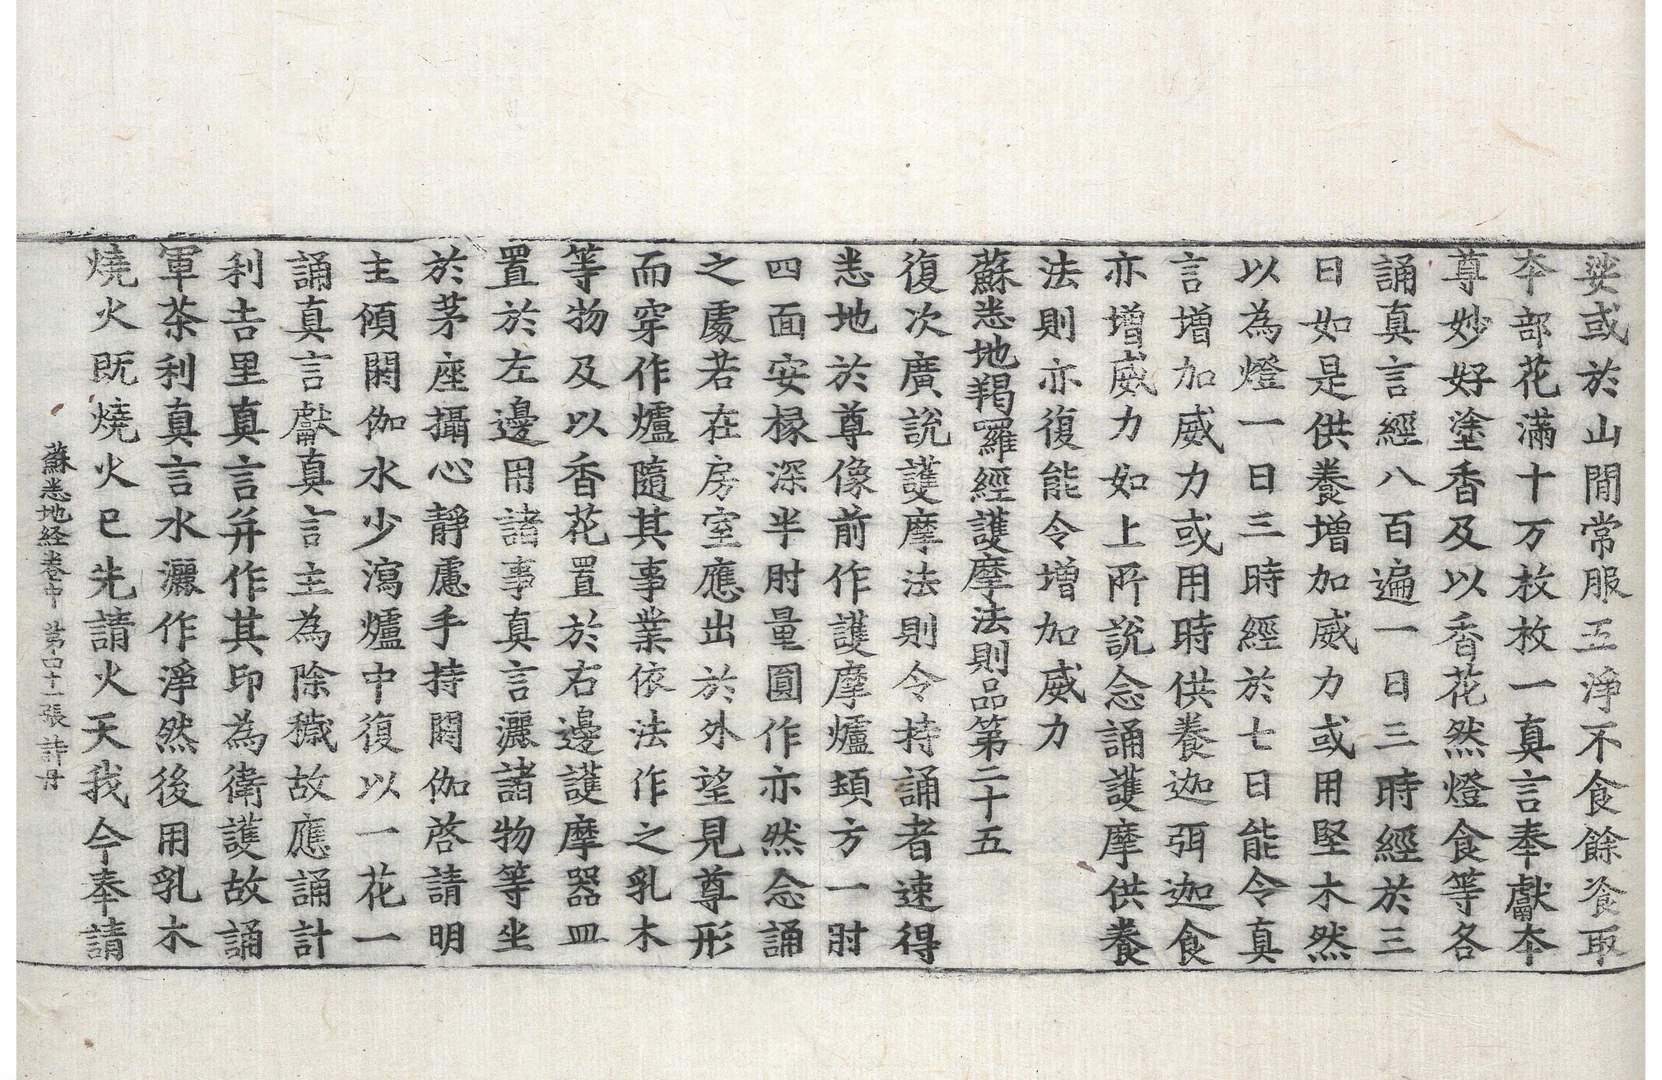 娑或於山閒常服五淨不食餘飡取
夲部花滿十万枚枚一真言奉獻夲
尊妙好塗香及以香花然燈食等各
誦真言經八百遍一日三時經於三
日如是供養增加威力或用堅木然
以為燈一日三時經於七日能令真
言增加威力或用時供養迦弭迦食
亦增威力如上所說念誦護摩供養
法則亦復能令增加威力
蘇悉地羯羅經護摩法則品第二十五
復次廣說護摩法則令持誦者速得
悉地於尊像前作護摩爐頄方一肘
四面安椽深半肘量圓作亦然念誦
之處若在房室應出於外望見尊形
而穿作爐隨其事業依法作之乳木
等物及以香花置於右邊護摩器皿
置於左邊用諸事真言灑諸物等坐
於茅座攝心靜慮手持閼伽啓請明
主傾閼伽水少瀉爐中復以一花一
誦真言獻真言主為除穢故應誦計
利吉里真言并作其印為衛護故誦
軍茶利真言水灑作淨然後用乳木
燒火既燒火已先請火天我今奉請
蘇悉地経卷中 第四十一張 詩